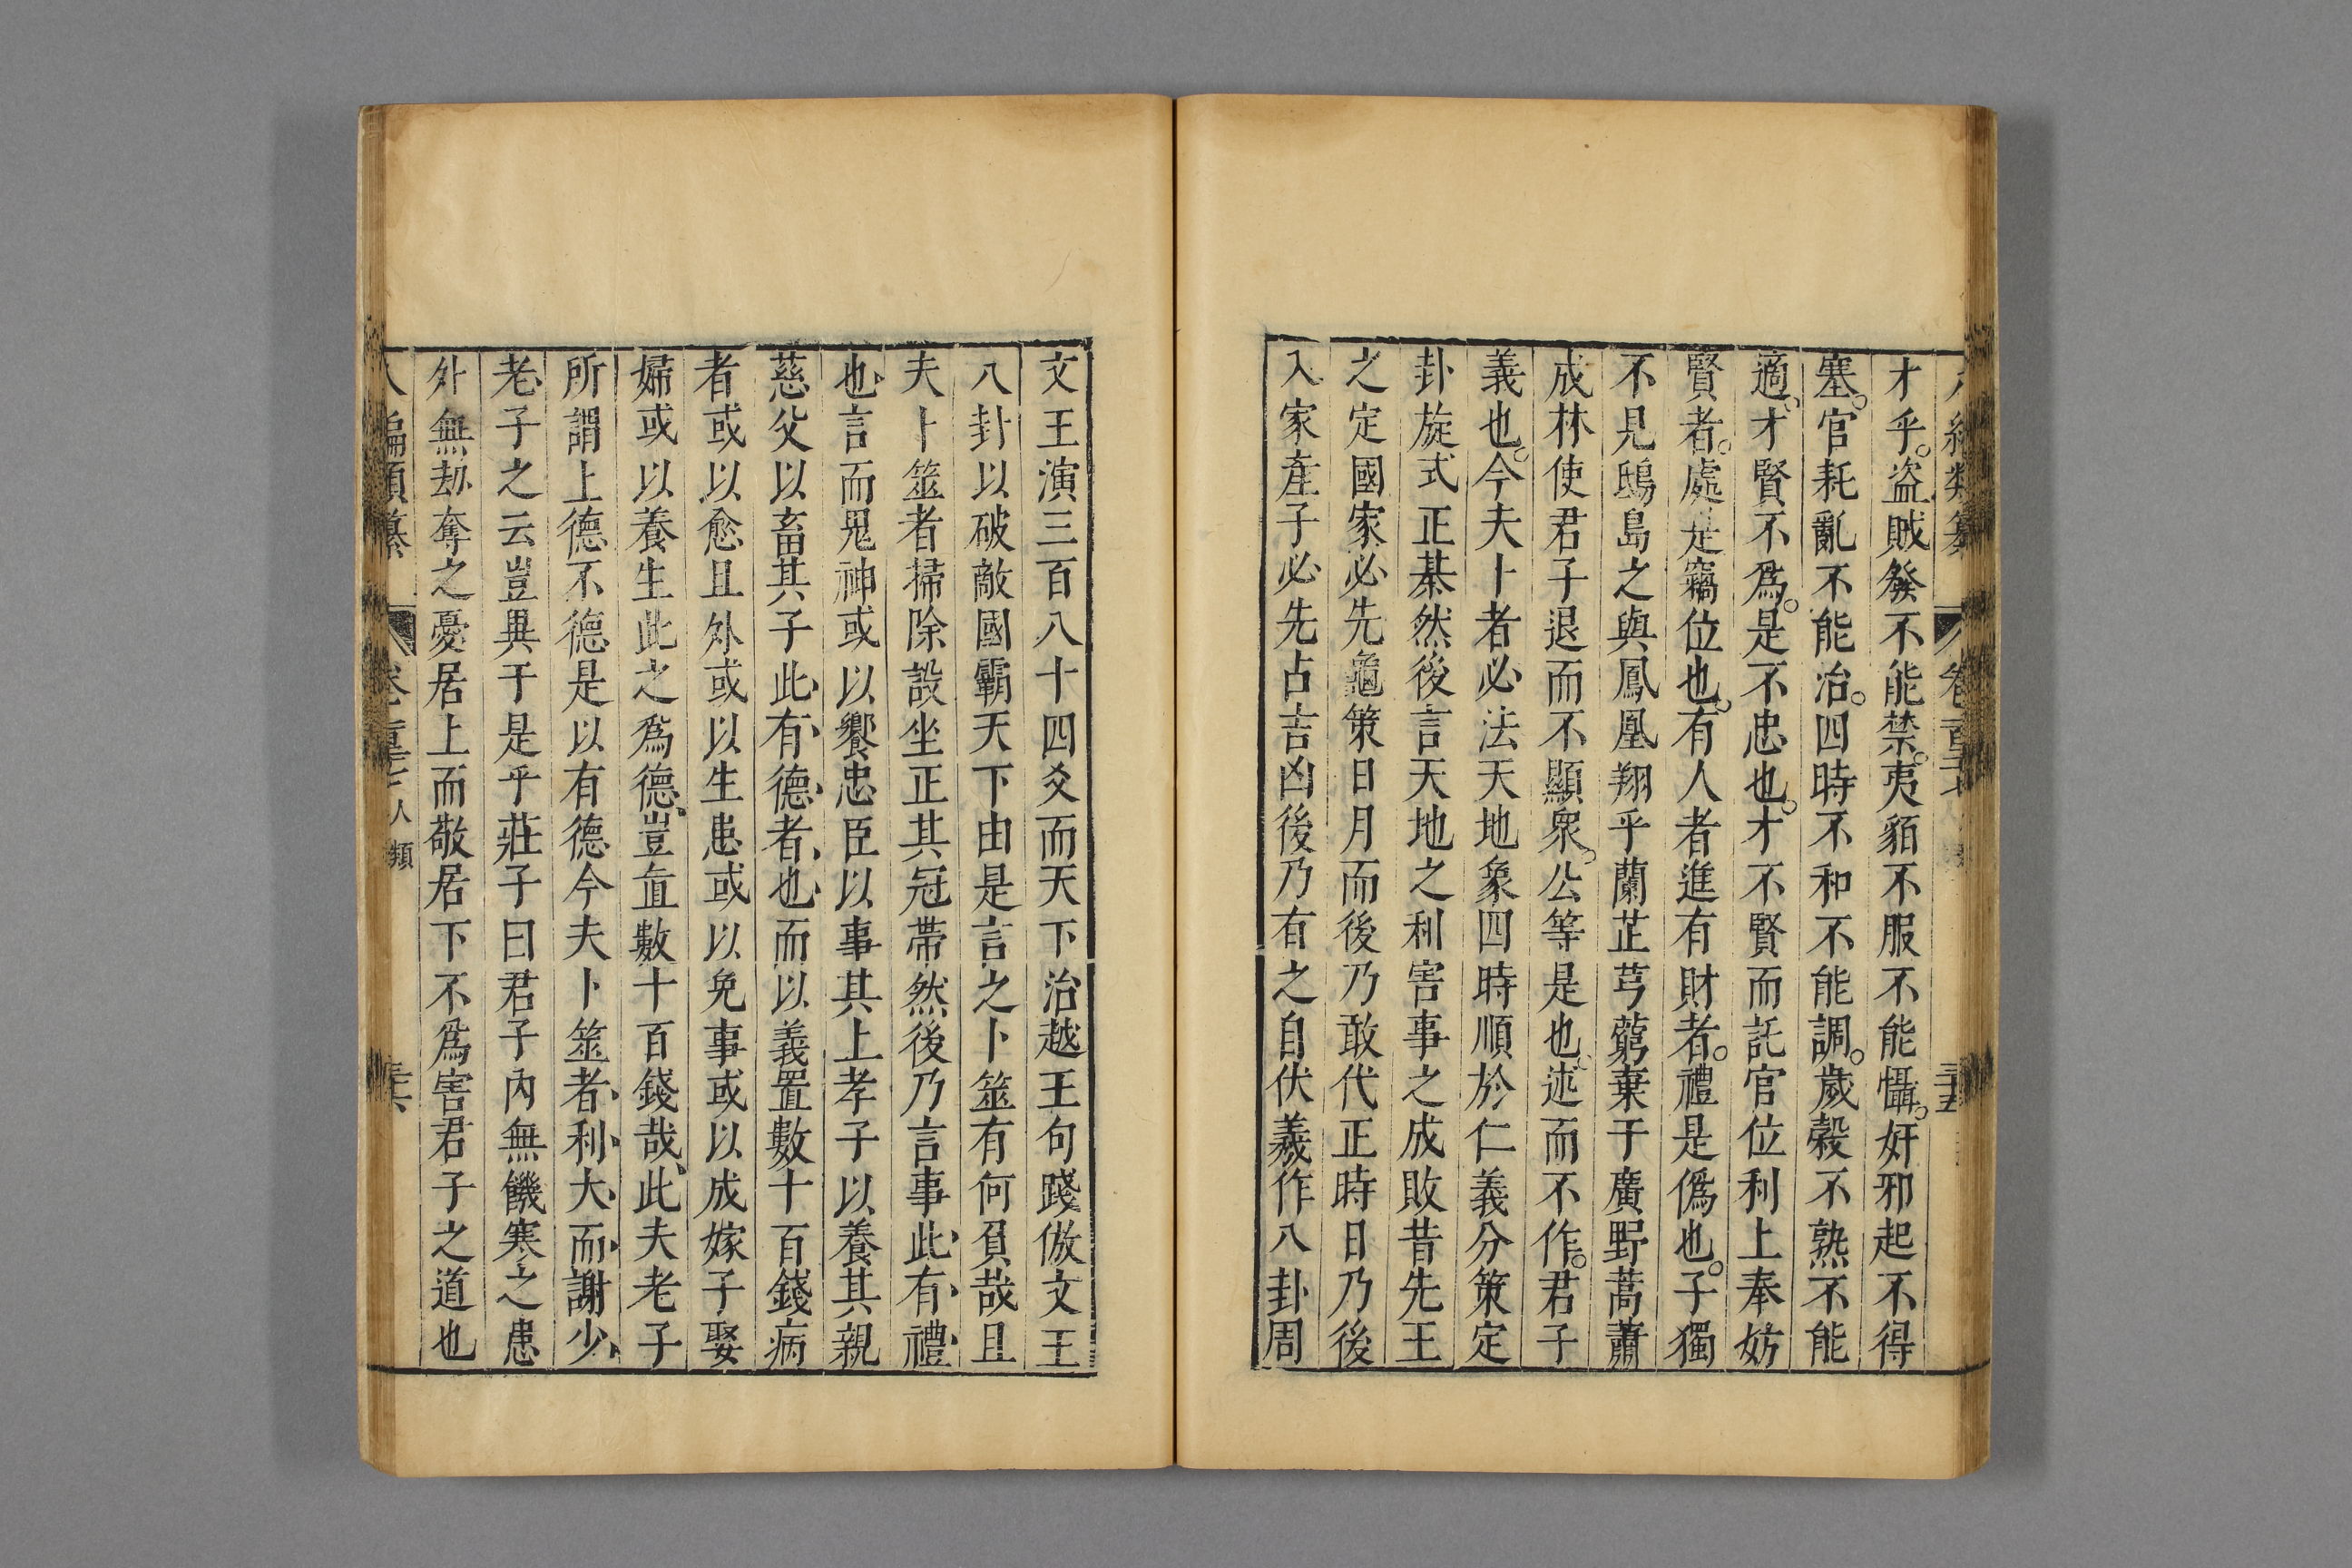 才乎。盗賊發不能禁。夷貊不服不能懾。奸邪起不得
塞。官耗亂不能治。四時不和不能調。歲穀不熟不能
適、才賢不爲。是不忠也。才不賢而託官位利上奉妨
賢者。處是竊位也。有人者進有財者。禮是僞也。子獨
不見鴟島之與鳳凰翔乎蘭芷芎藭棄于廣野蒿蕭
成林使君子退而不顯衆。公等是也、述而不作。君子
義也。今夫卜者必法天地象四時順於仁義分策定
卦旋式正棊然後言天地之利害事之成敗昔先王
之定國家必先龜策日月而後乃敢代正時日乃後
入家產子必先占吉凶後乃有之自伏羲作八卦周
文王演三百八十四爻而天下治越王句踐倣文王
八卦以破敵國霸天下由是言之卜筮有何負哉且
夫卜筮者掃除設坐正其冠帶然後乃言事此、有、禮、
也、言而鬼神或以饗忠臣以事其上孝子以養其親
慈父以畜其子此、有、德、者、也、而以義置數十百錢病
者或以愈且外或以生患或以免事或以成嫁子娶
婦或以養生此之爲德、豈直數十百錢哉、此夫老子
所謂上德不德是以有德今夫卜筮者、利、大、而、謝少、
老子之云豈異于是乎莊子曰君子內無饑寒之患
外無劫奪之憂居上而敬居下不爲害君子之道也
八編類纂 卷一百三十七人類 三十六